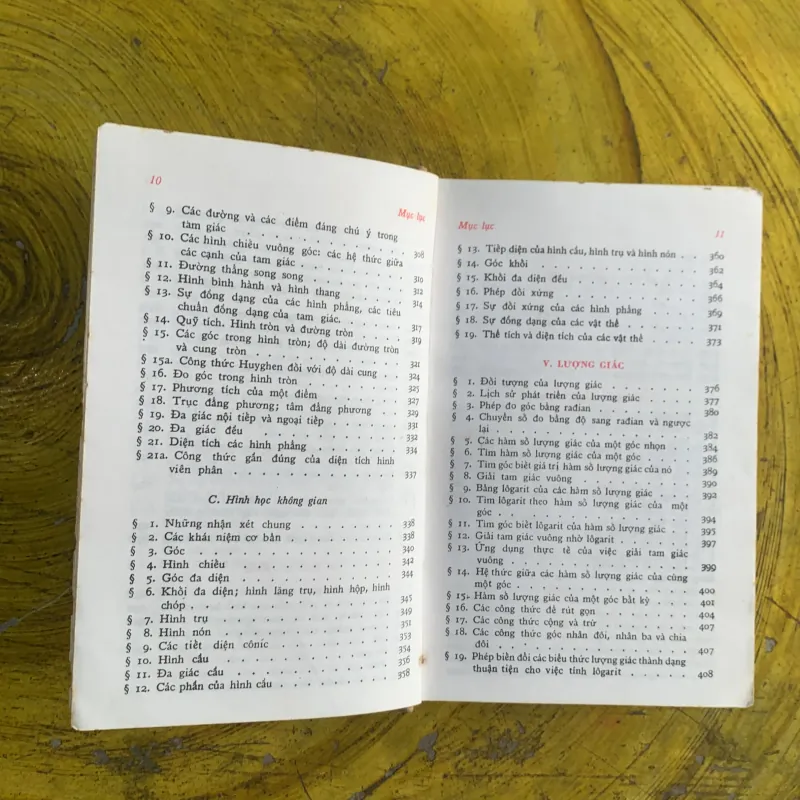 10
Mục lục
§ 9. Các đường và các điểm đáng chú ý trong
tam giác . . . . . . . . . . . . 308
§ 10. Các hình chiếu vuông góc: các hệ thức giữa
các cạnh của tam giác . . . . . . . . . 310
§ 11. Đường thẳng song song . . . . . . . . 312
§ 12. Hình bình hành và hình thang . . . . . . 314
§ 13. Sự đồng dạng của các hình phẳng, các tiêu
chuẩn đồng dạng của tam giác. . . . . . 317
§ 14. Quỹ tích. Hình tròn và đường tròn . . . . 319
§ 15. Các góc trong hình tròn; độ dài đường tròn
và cung tròn . . . . . . . . . . . 321
§ 15a. Công thức Huyghen đối với độ dài cung . . 324
§ 16. Đo góc trong hình tròn . . . . . . . . 325
§ 17. Phương tích của một điểm . . . . . . . 327
§ 18. Trục đẳng phương; tâm đẳng phương . . . 329
§ 19. Đa giác nội tiếp và ngoại tiếp . . . . . . 331
§ 20. Đa giác đều . . . . . . . . . . . 332
§ 21. Diện tích các hình phẳng . . . . . . . 334
§ 21a. Công thức gần đúng của diện tích hình
viên phân . . . . . . . . . . . . 337
C. Hình học không gian
§ 1. Những nhận xét chung . . . . . . . . 338
§ 2. Các khái niệm cơ bản . . . . . . . . 338
§ 3. Góc . . . . . . . . . . . . . . 340
§ 4. Hình chiếu . . . . . . . . . . . . 342
§ 5. Góc đa diện . . . . . . . . . . . 344
§ 6. Khối đa diện; hình lăng trụ, hình hộp, hình
chóp. . . . . . . . . . . . . . 345
§ 7. Hình trụ . . . . . . . . . . . . 349
§ 8. Hình nón . . . . . . . . . . . . 351
§ 9. Các tiết diện cônic . . . . . . . . . 353
§ 10. Hình cầu . . . . . . . . . . . . 354
§ 11. Đa giác cầu . . . . . . . . . . . 356
§ 12. Các phần của hình cầu . . . . . . . . 358
Mục lục
11
§ 13. Tiếp diện của hình cầu, hình trụ và hình nón . . 360
§ 14. Góc khối . . . . . . . . . . . . 362
§ 15. Khối đa diện đều . . . . . . . . . 364
§ 16. Phép đối xứng . . . . . . . . . . 366
§ 17. Sự đối xứng của các hình phẳng . . . . 369
§ 18. Sự đồng dạng của các vật thể . . . . . 371
§ 19. Thể tích và diện tích của các vật thể . . . 373
V. LƯỢNG GIÁC
§ 1. Đối tượng của lượng giác . . . . . . . 376
§ 2. Lịch sử phát triển của lượng giác . . . . 377
§ 3. Phép đo góc bằng rađian . . . . . . . 380
§ 4. Chuyển số đo bằng độ sang rađian và ngược
lại . . . . . . . . . . . . . . 382
§ 5. Các hàm số lượng giác của một góc nhọn . . 384
§ 6. Tìm hàm số lượng giác của một góc . . . . 386
§ 7. Tìm góc biết giá trị hàm số lượng giác của nó . 389
§ 8. Giải tam giác vuông . . . . . . . . . 390
§ 9. Bảng lôgarit của các hàm số lượng giác . . . 392
§ 10. Tìm lôgarit theo hàm số lượng giác của một
góc . . . . . . . . . . . . . . 394
§ 11. Tìm góc biết lôgarit của hàm số lượng giác . . 395
§ 12. Giải tam giác vuông nhờ lôgarit . . . . . 397
§ 13. Ứng dụng thực tế của việc giải tam giác
vuông . . . . . . . . . . . . . 399
§ 14. Hệ thức giữa các hàm số lượng giác của cùng
một góc . . . . . . . . . . . . . 400
§ 15. Hàm số lượng giác của một góc bất kỳ . . . 401
§ 16. Các công thức để rút gọn . . . . . . . 404
§ 17. Các công thức cộng và trừ . . . . . . . 407
§ 18. Các công thức góc nhân đôi, nhân ba và chia
đôi . . . . . . . . . . . . . . 407
§ 19. Phép biến đổi các biểu thức lượng giác thành dạng
thuận tiện cho việc tính lôgarit . . . . . 408